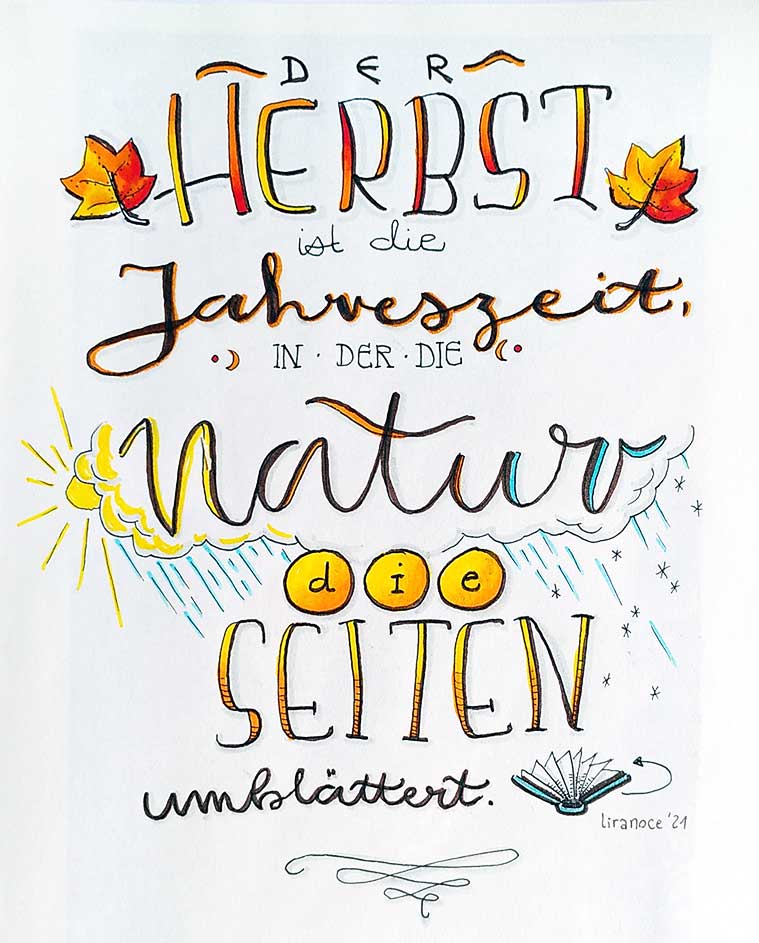 DER
HERBST
ist die
Jahreszeit,
IN · DER · DIE
Natur
die
SEITEN
umblättert.
liranoce '21